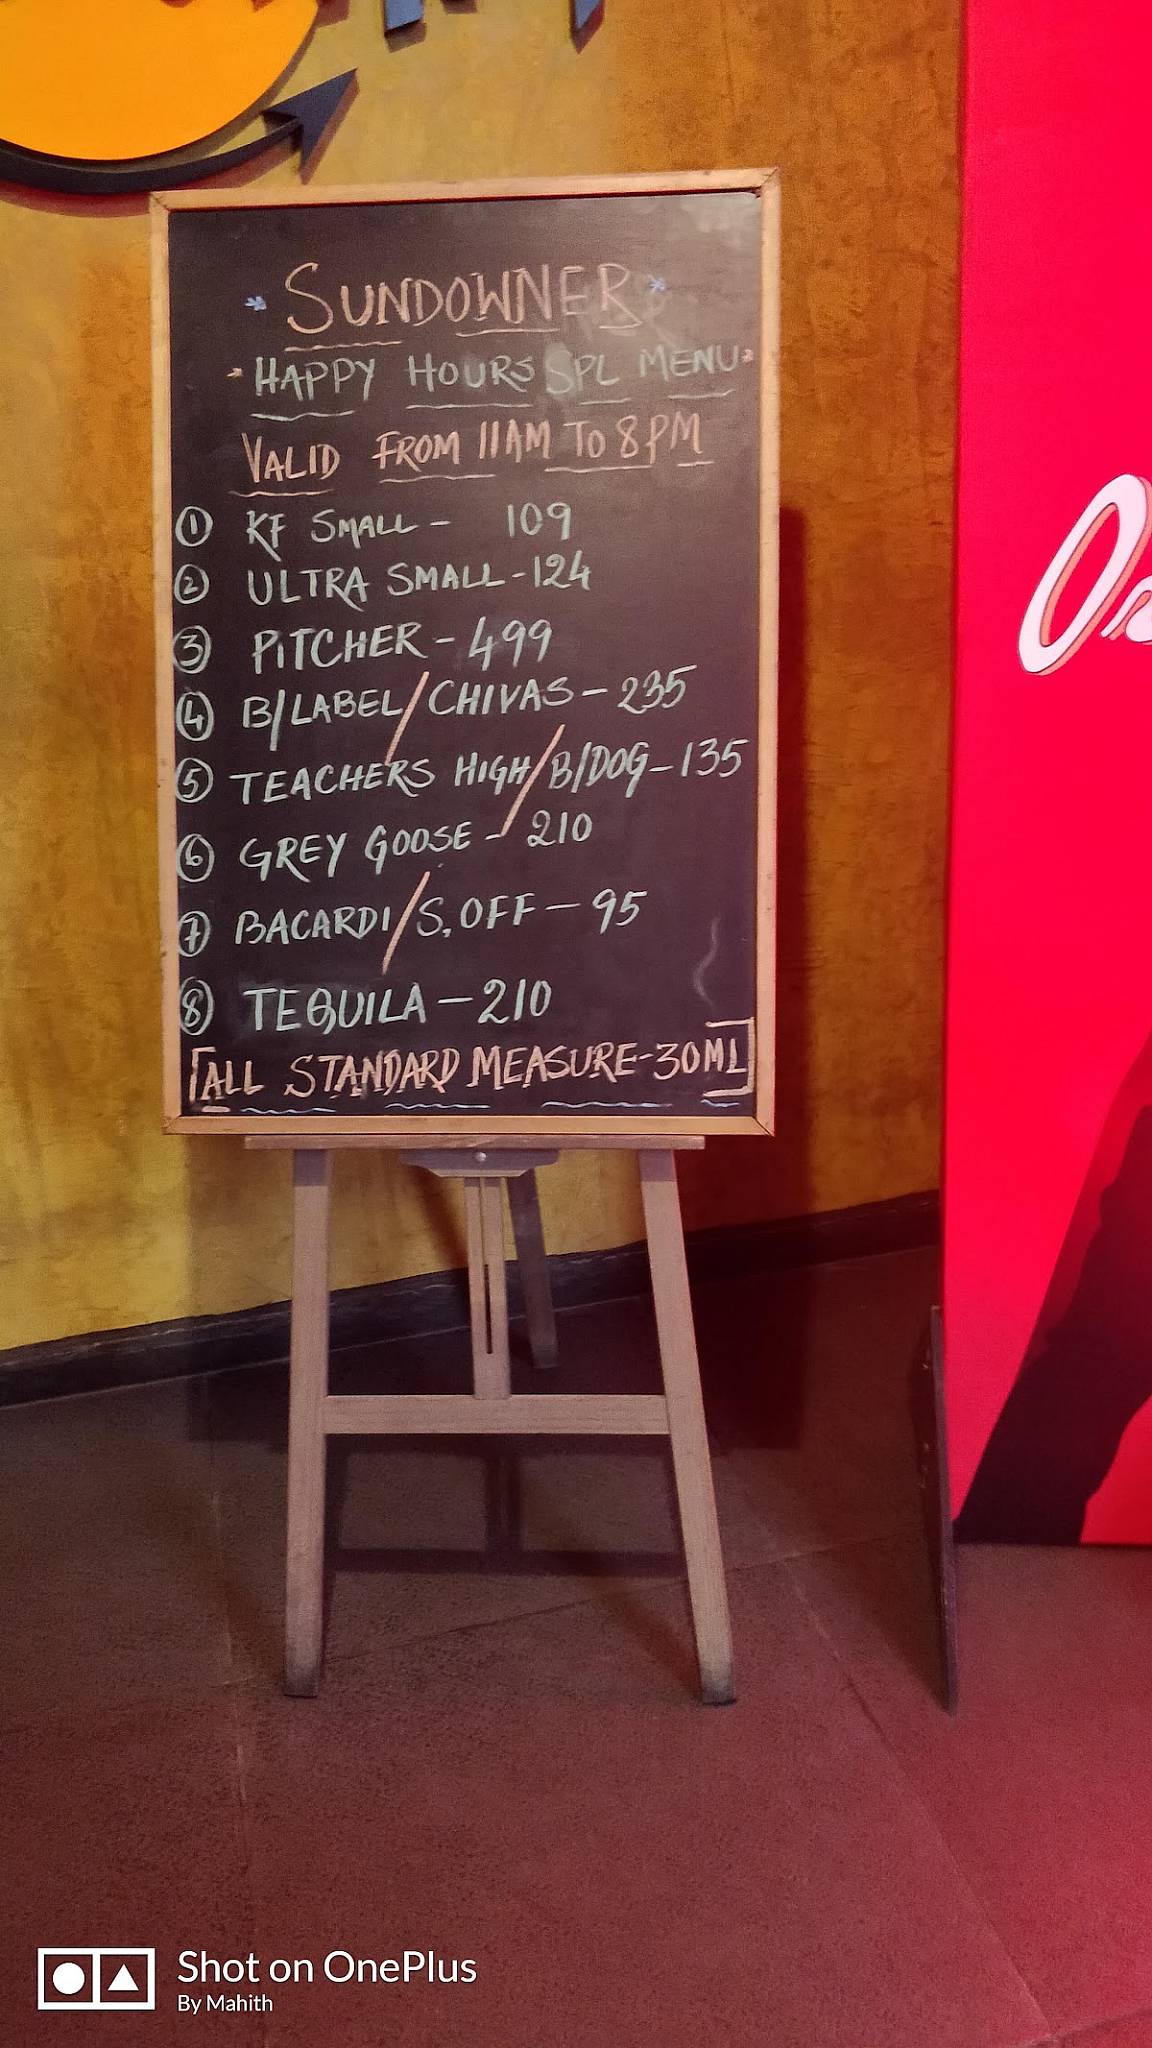 SUNDOWNER
HAPPY HOURS SPL MENU
VALID FROM 11AM TO 8PM
1 KF SMALL - 109
2 ULTRA SMALL - 124
3 PITCHER - 499
4 B/LABEL/CHIVAS - 235
5 TEACHERS HIGH/B/DOG - 135
6 GREY GOOSE - 210
7 BACARDI/S.OFF - 95
8 TEQUILA - 210
[ALL STANDARD MEASURE-30ML]
Shot on OnePlus
By Mahith